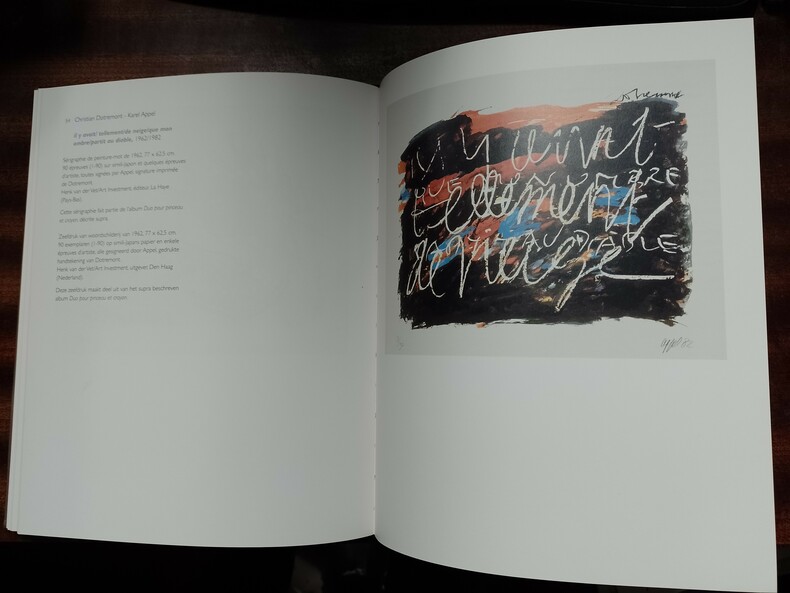 Christian Dotremont - Karel Appel
il y avait/ tellement/de neige/que mon
ombre/paraît au diable, 1962/1982
Sérigraphie de peinture-mot de 1962, 77 x 62.5 cm.
90 épreuves (1-90) sur simili-japon et quelques épreuves
d'artiste, toutes signées par Appel signature imprimée
de Dotremont.
Henk van der Vet/Art Investment, éditeur La Haye
(Pays-Bas).
Cette sérigraphie fait partie de l'album Duo pour pinceau
et crayon, décrite supra.
Zeefdruk van woordschilderij van 1962, 77 x 62.5 cm.
90 exemplaren (1-90) op simili-japans papier en enkele
épreuves d'artiste, alle gesigneerd door Appel gedrukte
handtekening van Dotremont.
Henk van der Vet/Art Investment, uitgever Den Haag
(Nederland).
Deze zeefdruk maakt deel uit van het supra beschreven
album Duo pour pinceau et crayon.
il y avait
QUE MON OMBRE
tellement
AU DIABLE
de neige
appel 82